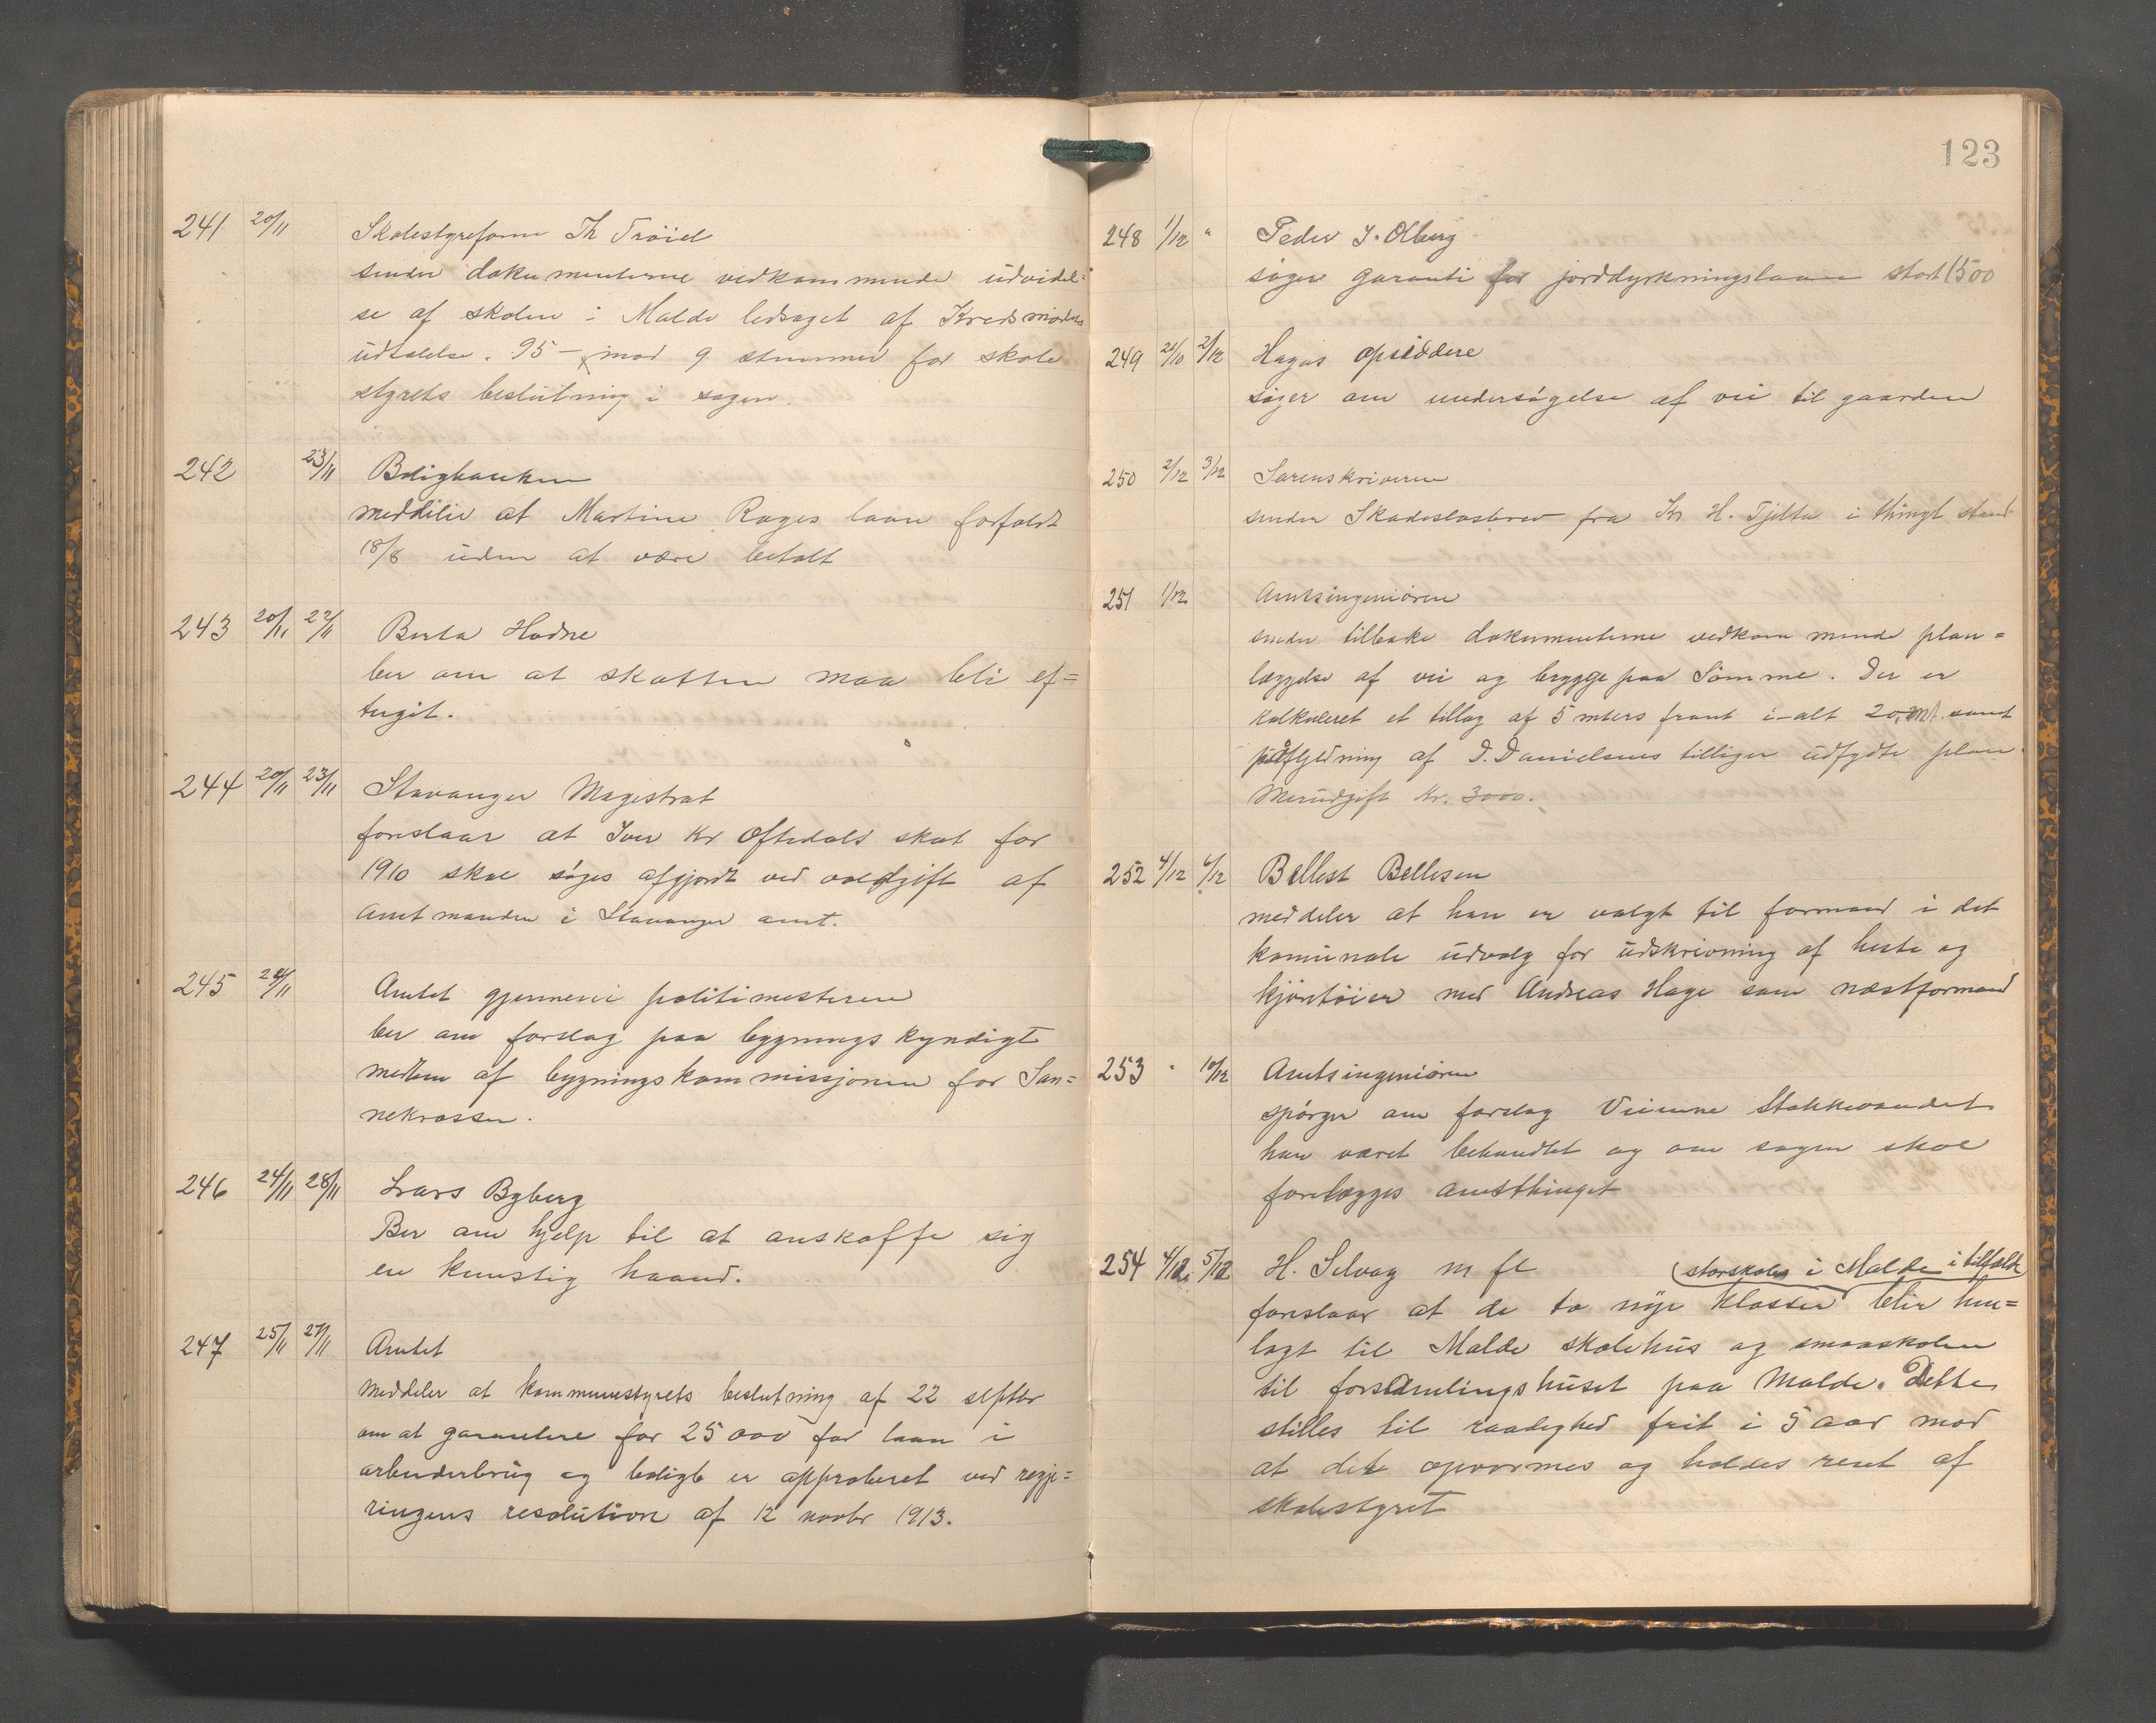 241 20/11 Skolestyreform Th Tröiel
sender dokumenterne vedkommende udvidel=
se af skolen i Malde ledsaget af Kredsmödets
udtalelse. 95 – mod 9 stemmer for skole
styrets beslutning i sagen.
242 23/11 Boligbanken
meddeler at Martine Rages laan forfaldt
18/8 uden at være betalt
243 20/11 22/11 Berta Hodne
ber om at skatten maa bli ef=
tergit.
244 20/11 23/11 Stavanger Magistrat
foreslaar at Iver Kr Oftedals skat for
1910 skal söges afgjordt ved voldgift af
Amtmanden i Stavanger amt.
245 24/11 Amtet gjennem politimesteren
ber om forslag paa bygningskyndigt
medlem af bygningskommissjonen for San=
nekrossen.
246 24/11 28/11 Lars Byberg
Ber om hjelp til at anskaffe sig
en kunstig haand.
247 25/11 27/11 Amtet
meddeler at kommunestyrets beslutning af 22 septbr
om at garantere for 25000 for laan i
arbeiderbrug og bolig er approberet ved regje=
ringens resolution af 12 novbr 1913.
123
248 1/12 " Peder J. Olberg
söger garanti for jorddyrkningslaan stort 1500
249 21/10 2/12 Hagas opsiddere
söger om undersögelse af vei til gaarden
250 2/12 3/12 Sorenskriveren
sender Skadeslosbrev fra Kr H. Tjelta i thinglt stand
251 1/12 Amtsingeniören
sender tilbake dokumenterne vedkommende plan=
læggelse af vei og brygge paa Sömme. Der er
kalkuleret et tillæg af 5 meters front i-alt 20 mt. samt
paafyldning af D. Danielsens tilliger udfyldte plan
Merudgift Kr. 3000.
252 4/12 6/12 Bellest Bellesen
meddeler at han er valgt til formand i det
komunale udvalg for udskrivning af heste og
kjöretöier med Andreas Hage som næstformand
253 " 10/12 Amtsingeniören
spörger om forslag Veiene Stokkevandet
har været behandlet og om sagen skal
forelægges amtsthinget
254 4/12 5/12 H. Selvag m fl
storskolen i Malde i tilfælde
foreslaar at de to nye klasser blir hen=
lagt til Malde skolehus og smaaskolen
til forsamlingshuset paa Malde. Dette
stilles til raadighed frit i 5 aar mod
at det opvarmes og holdes rent af
skolestyret